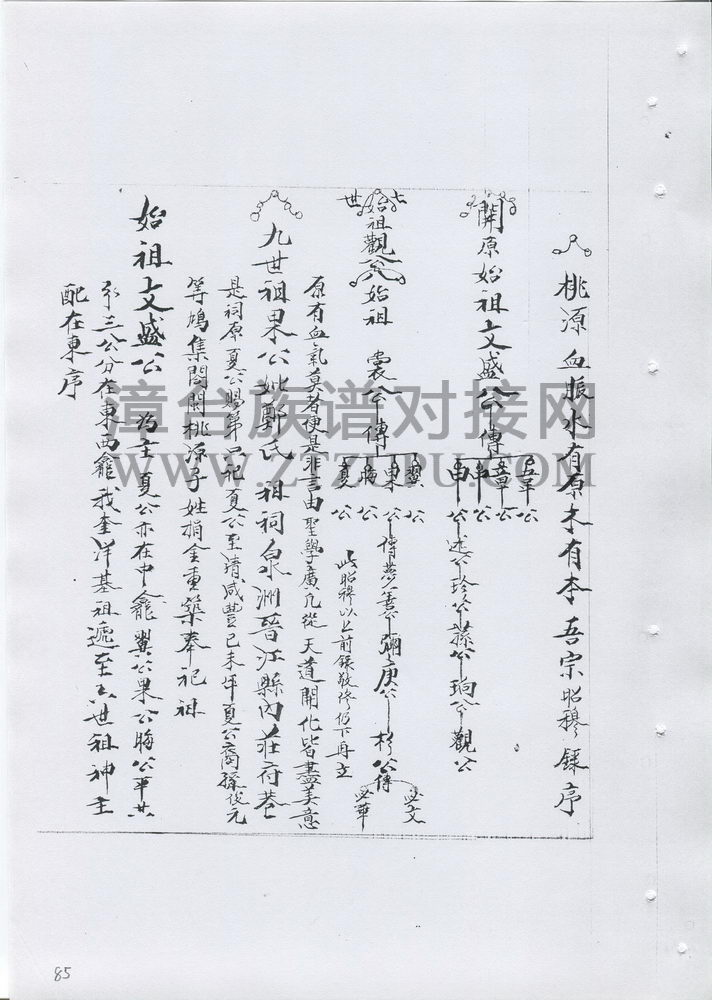 桃源血脈水有原木有本吾宗昭穆錄序
開原始祖文盛公傳
五平公
五章公
公
申公述公珍公藤公珦公觀公
七世
始祖觀公
始祖裳公傳
翼公
果公傳夢公善公彌公庚公杉公傳
必文
必華
晦公
夏公
此昭穆以上前錄敬修仍下再立
原有血氣莫者便是非言由聖學廣凡從天道開化皆盡美意
九世祖果公妣鄭氏祖祠泉洲晉江縣內莊府巷
是祠原夏公賜第只祀夏公至清咸豐已未年夏公裔孫俊元
等鳩集閤關桃源子姓捐金重築奉祀祖
始祖文盛公為主夏公亦在中龕翼公果公晦公平共
三公分在東西龕我奎洋基祖遞至六世祖神主
配在東序
漳台族谱对接网
WWW.ZTZUPU.COM
85